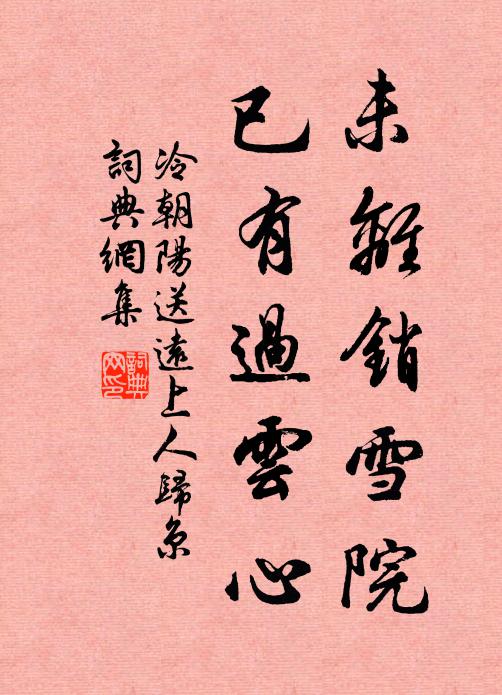 未離銷雪院
已有過雲心
冷朝陽送遠上人歸京
詞典網集
詞典
网印